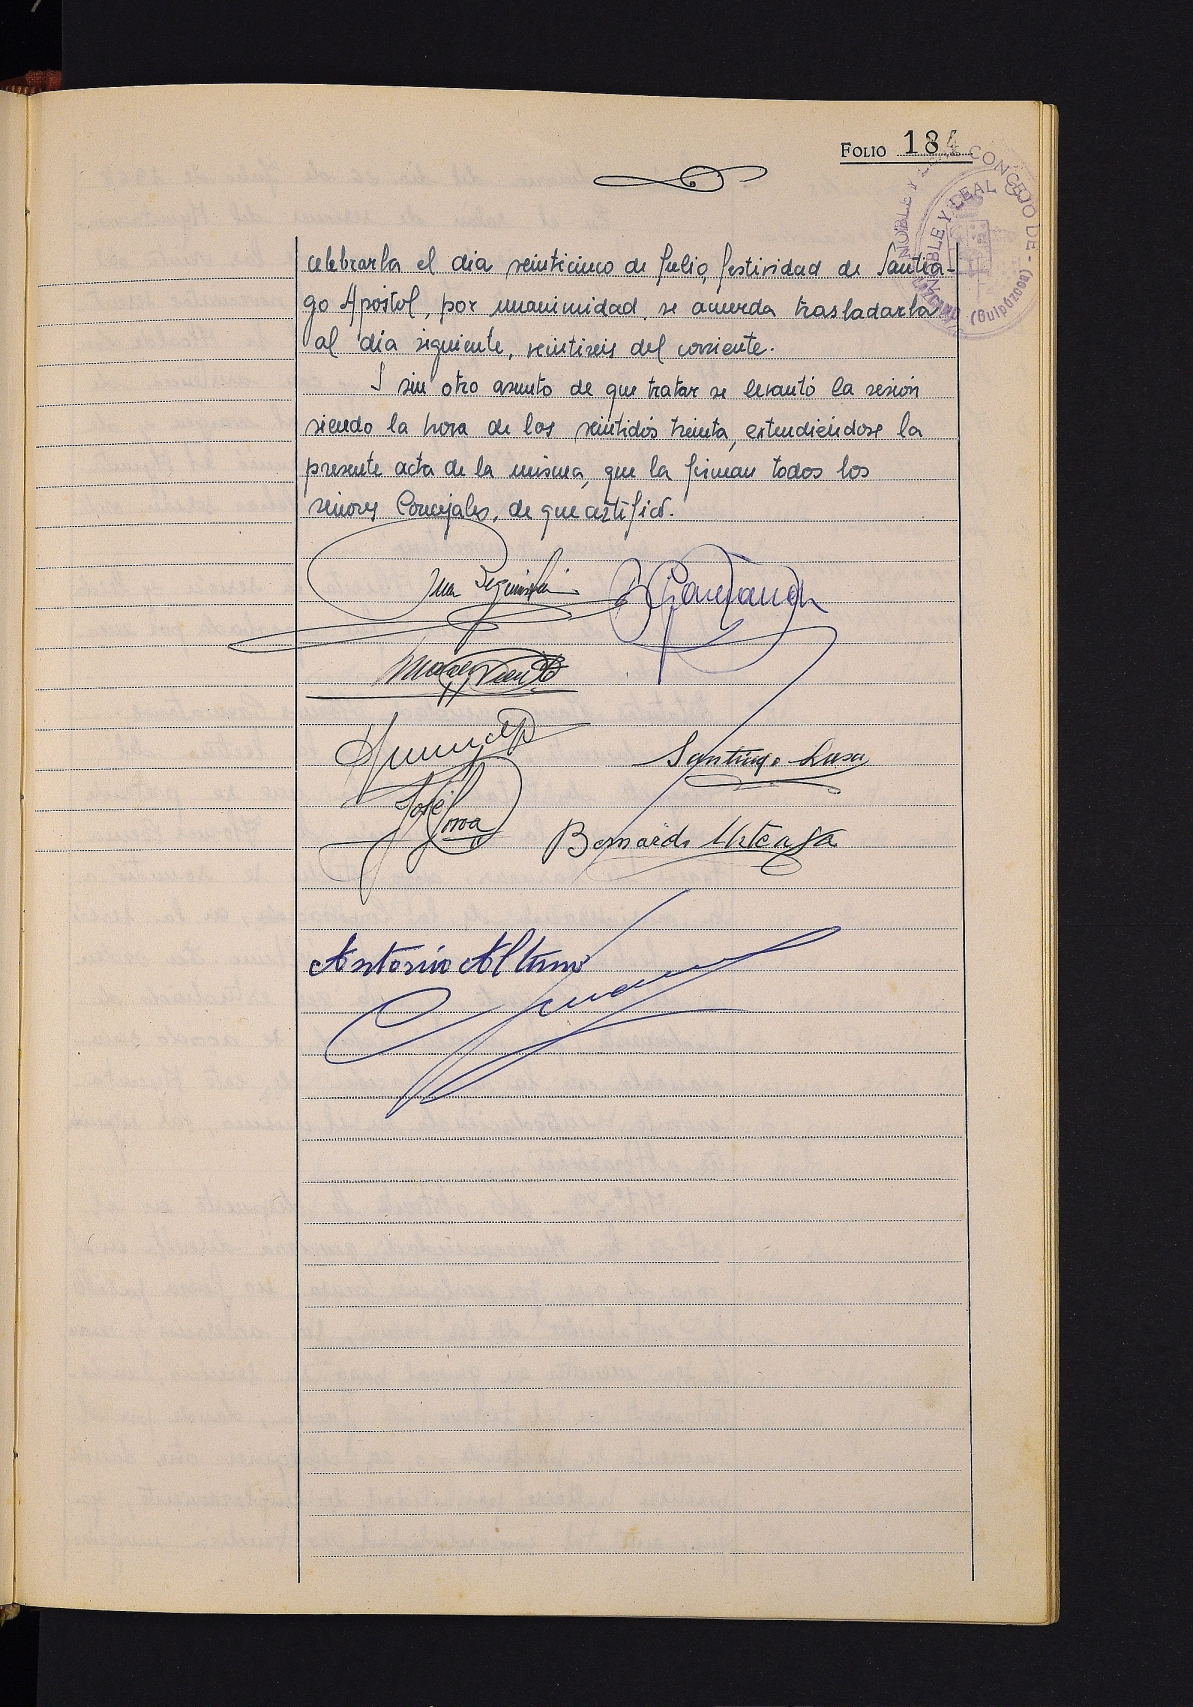 FOLIO 184
NOBLE Y LEAL CONCEJO DE - (Guipúzcoa)
NOBLE Y LEAL
celebrarla el día veinticinco de Julio, festividad de Santia-
go Apóstol, por unanimidad, se acuerda trasladarla
al día siguiente, veintiseis del corriente.
Y sin otro asunto de que tratar se levantó la sesión
siendo la hora de las veintidós treinta, extendiéndose la
presente acta de la misma, que la firman todos los
señores Concejales, de que certifico.
Santiago Lasa
José
Bernardo Urteaga
Antonio Altuna